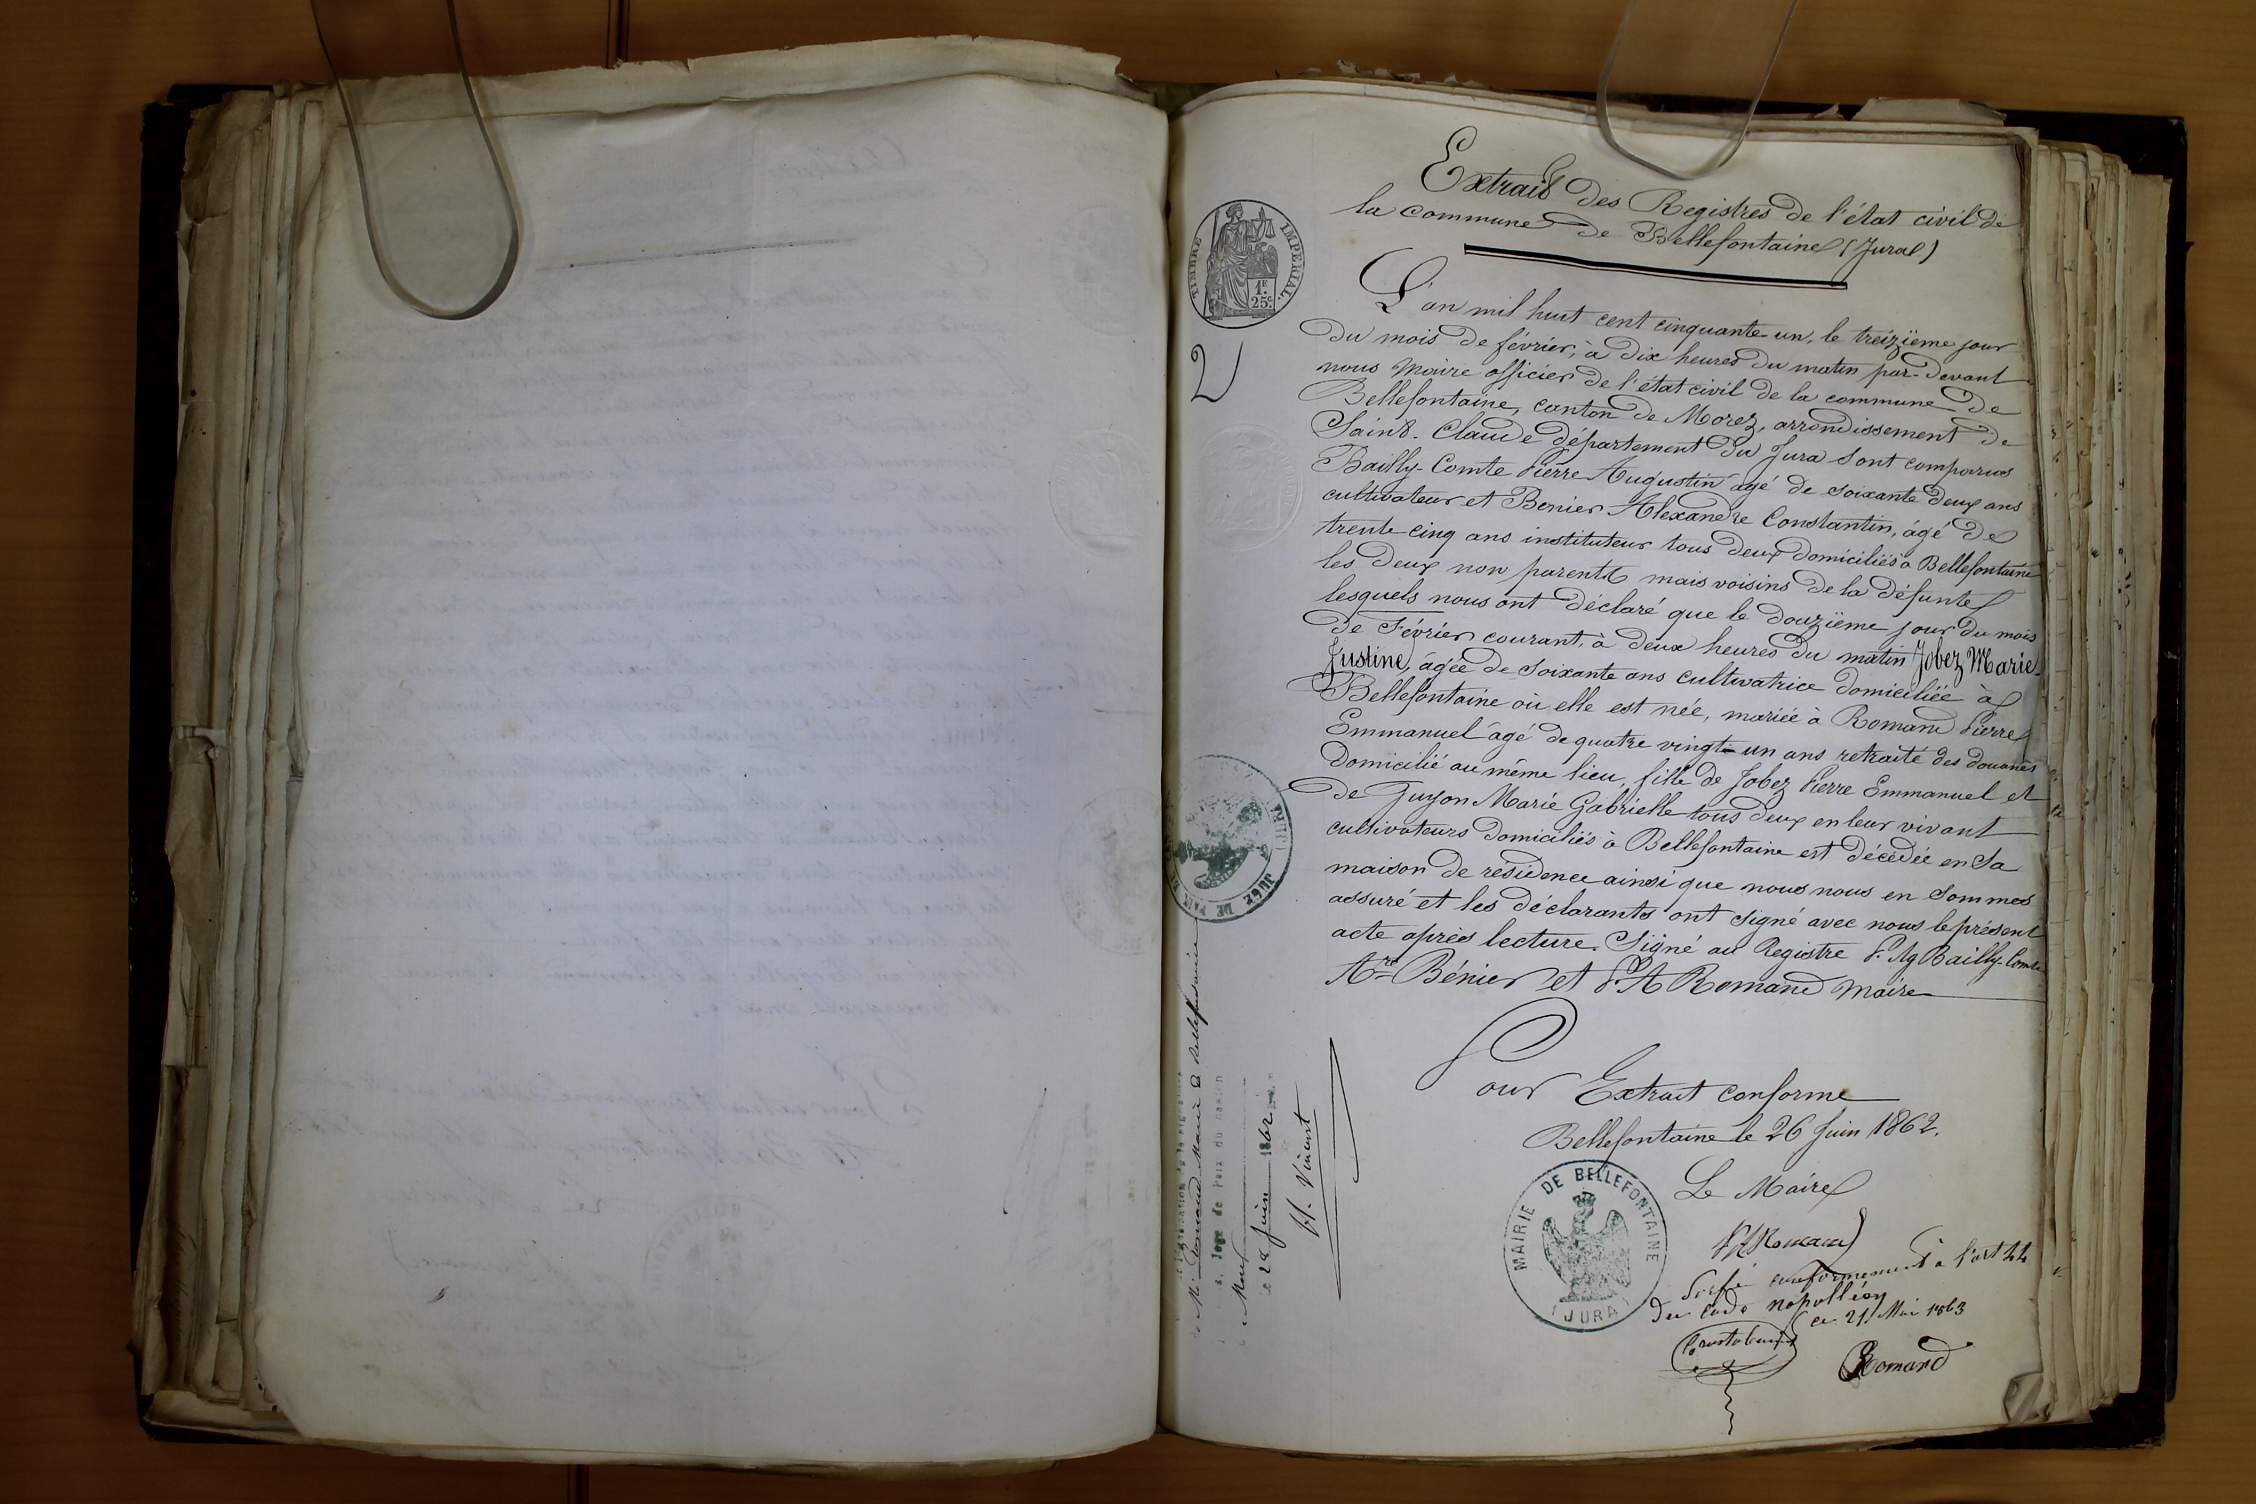 Extrait des Registres de l'état civil de
la commune de Bellefontaine (Jura)
TIMBRE IMPÉRIAL
1F. 25c.
2
L'an mil huit cent cinquante-un, le treizième jour
du mois de février, à dix heures du matin par-devant
nous Maire officier de l'état civil de la commune de
Bellefontaine, canton de Morez, arrondissement de
Saint-Claude département du Jura sont comparus
Bailly-Comte Pierre Augustin agé de soixante deux ans
cultivateur et Benier Alexandre Constantin, âgé de
trente cinq ans instituteur tous deux domiciliés à Bellefontaine
les deux non parents mais voisins de la défunte
lesquels nous ont déclaré que le douzième jour du mois
de Février courant, à deux heures du matin Jobez Marie
Justine, âgée de soixante ans cultivatrice domiciliée à
Bellefontaine où elle est née, mariée à Romand Pierre
Emmanuel âgé de quatre vingt-un ans retraité des douanes
domicilié au même lieu, fille de Jobez Pierre Emmanuel et
de Guyon Marie Gabrielle tous deux en leur vivant
cultivateurs domiciliés à Bellefontaine est décédée en sa
maison de résidence ainsi que nous nous en sommes
assuré et les déclarants ont signé avec nous le présent
acte après lecture. Signé au Registre P. Ag Bailly-Comte
Are Bénier et P. A Romand Maire
Pour Extrait conforme
Bellefontaine le 26 Juin 1862.
Le Maire
PA Romand
MAIRIE DE BELLEFONTAINE
(JURA)
conformément à l'art 44
du code napoléon
ce 21 Mai 1863
Romand
JUGE DE PAIX
de la signature
de Mr Romand Maire à Bellefontaine
Juge de Paix du canton
juin 1862
H. Vincent